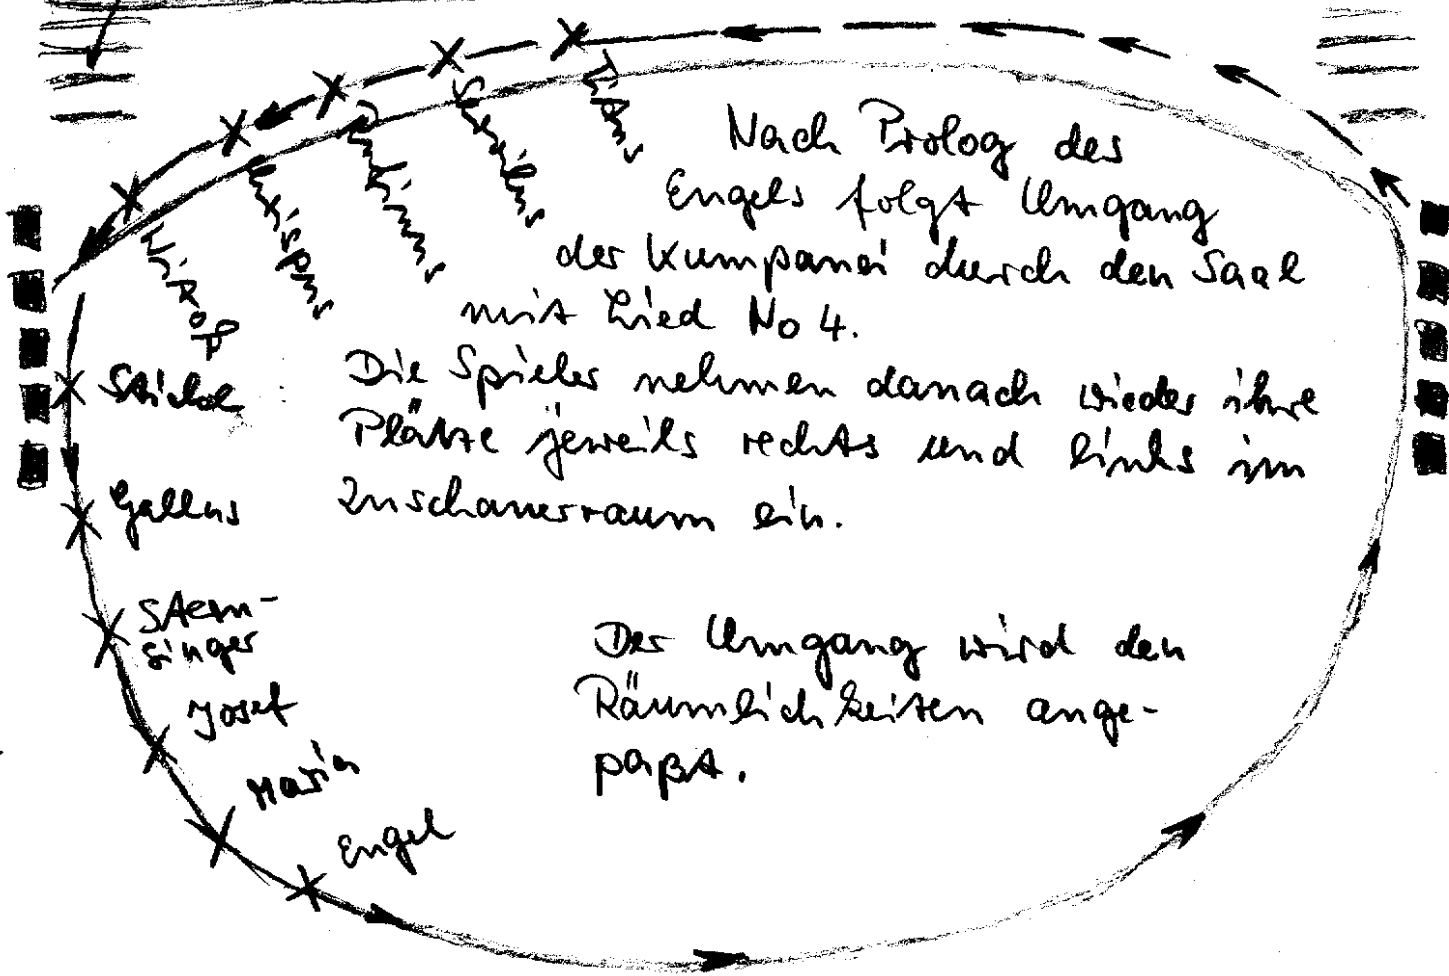 Nach Prolog des
Engels folgt Umgang
der Kumpanei durch den Saal
mit Lied No 4.
Die Spieler nehmen danach wieder ihre
Plätze jeweils rechts und links im
Zuschauerraum ein.
Der Umgang wird den
Räumlichkeiten ange-
paßt.
Crispus
Witok
Stichl
Gallus
Stern-
singer
Josef
Maria
Engel